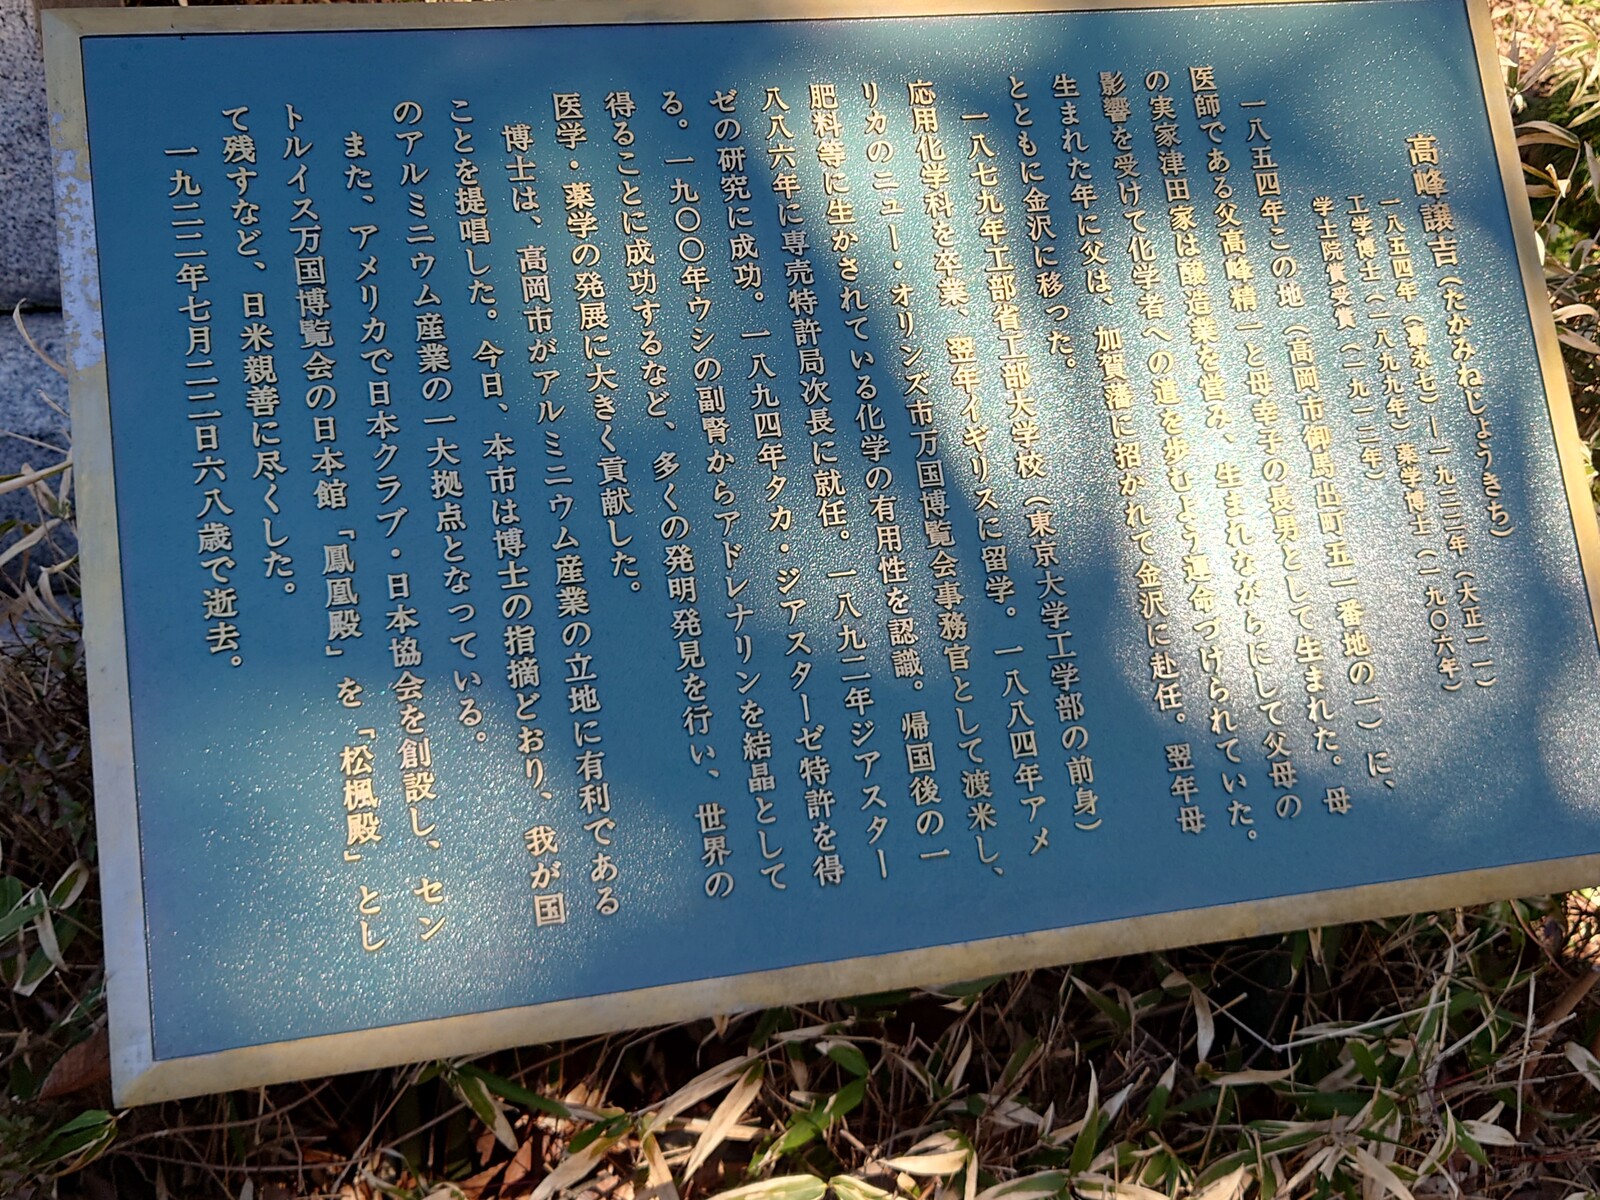 高峰譲吉（たかみねじょうきち）
一八五四年（嘉永七）―一九二二年（大正一一）
工学博士（一八九九年）薬学博士（一九〇六年）
学士院賞受賞（一九一二年）
一八五四年この地（高岡市御馬出町五一番地の一）に、
医師である父高峰精一と母幸子の長男として生まれた。母
の実家津田家は醸造業を営み、生まれながらにして父母の
影響を受けて化学者への道を歩むよう運命づけられていた。
生まれた年に父は、加賀藩に招かれて金沢に赴任。翌年母
とともに金沢に移った。
一八七九年工部省工部大学校（東京大学工学部の前身）
応用化学科を卒業、翌年イギリスに留学。一八八四年アメ
リカのニュー・オリンズ市万国博覧会事務官として渡米し、
肥料等に生かされている化学の有用性を認識。帰国後の一
八八六年に専売特許局次長に就任。一八九二年ジアスター
ゼの研究に成功。一八九四年タカ・ジアスターゼ特許を得
る。一九〇〇年ウシの副腎からアドレナリンを結晶として
得ることに成功するなど、多くの発明発見を行い、世界の
医学・薬学の発展に大きく貢献した。
博士は、高岡市がアルミニウム産業の立地に有利である
ことを提唱した。今日、本市は博士の指摘どおり、我が国
のアルミニウム産業の一大拠点となっている。
また、アメリカで日本クラブ・日本協会を創設し、セン
トルイス万国博覧会の日本館「鳳凰殿」を「松楓殿」とし
て残すなど、日米親善に尽くした。
一九二二年七月二二日六八歳で逝去。